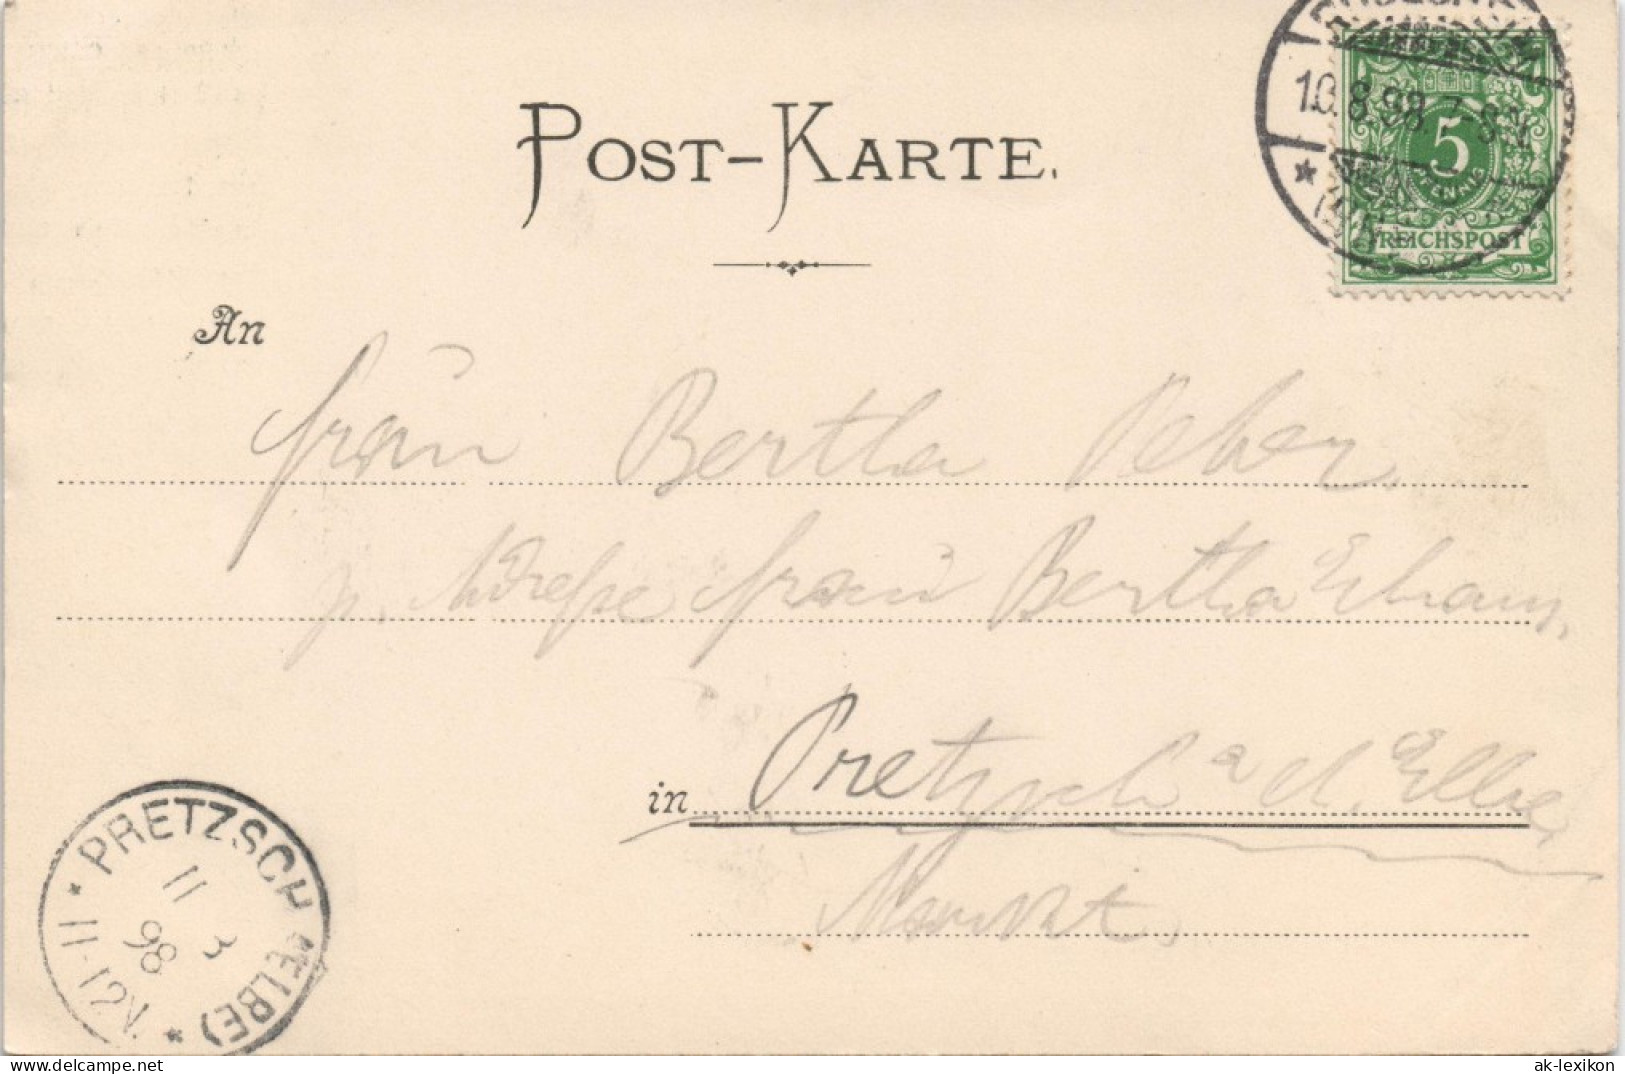 POST-KARTE.
10.8.98.7-8N.
5
PFENNIG
REICHSPOST
An
Frau Bertha Weber.
p. Adresse Frau Bertha
in Pretzsch a d. Elbe
Markt.
PRETZSCH (ELBE)
11
98
11-12V.
www.delcampe.net
ak-lexikon